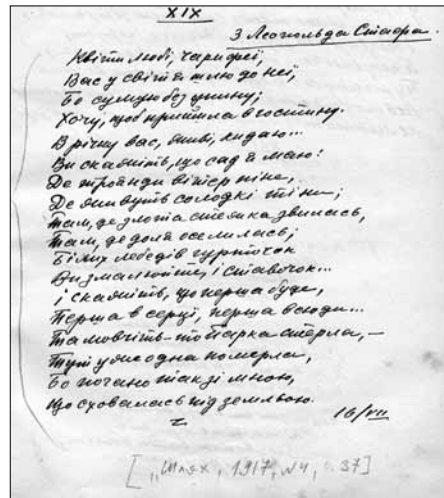 XIX
З Леопольда Стаффа.
Квіти любі, чари феї,
Вас у світ я шлю до неї,
Бо сумую без упину;
Хочу, щоб прийшла в гостину.
В річку вас, живі, кидаю...
Ви скажіть, що сад я маю:
Де троянди вітер ніжe,
Де живуть солодкі тіни;
Там, де злота стежка звилась,
Там, де доля оселилась;
Білих лебедів гурточок
Ви змалюйте, і ставочок...
і скажіть, що перша буде,
Перша в серці, перша всюди...
Та мовчіть – що Парка стерла, –
Тут уже одна померла,
Бо погано так зі мною,
Що сховалась під землею.
16/VII
[„Шлях", 1917, №4, с. 37]